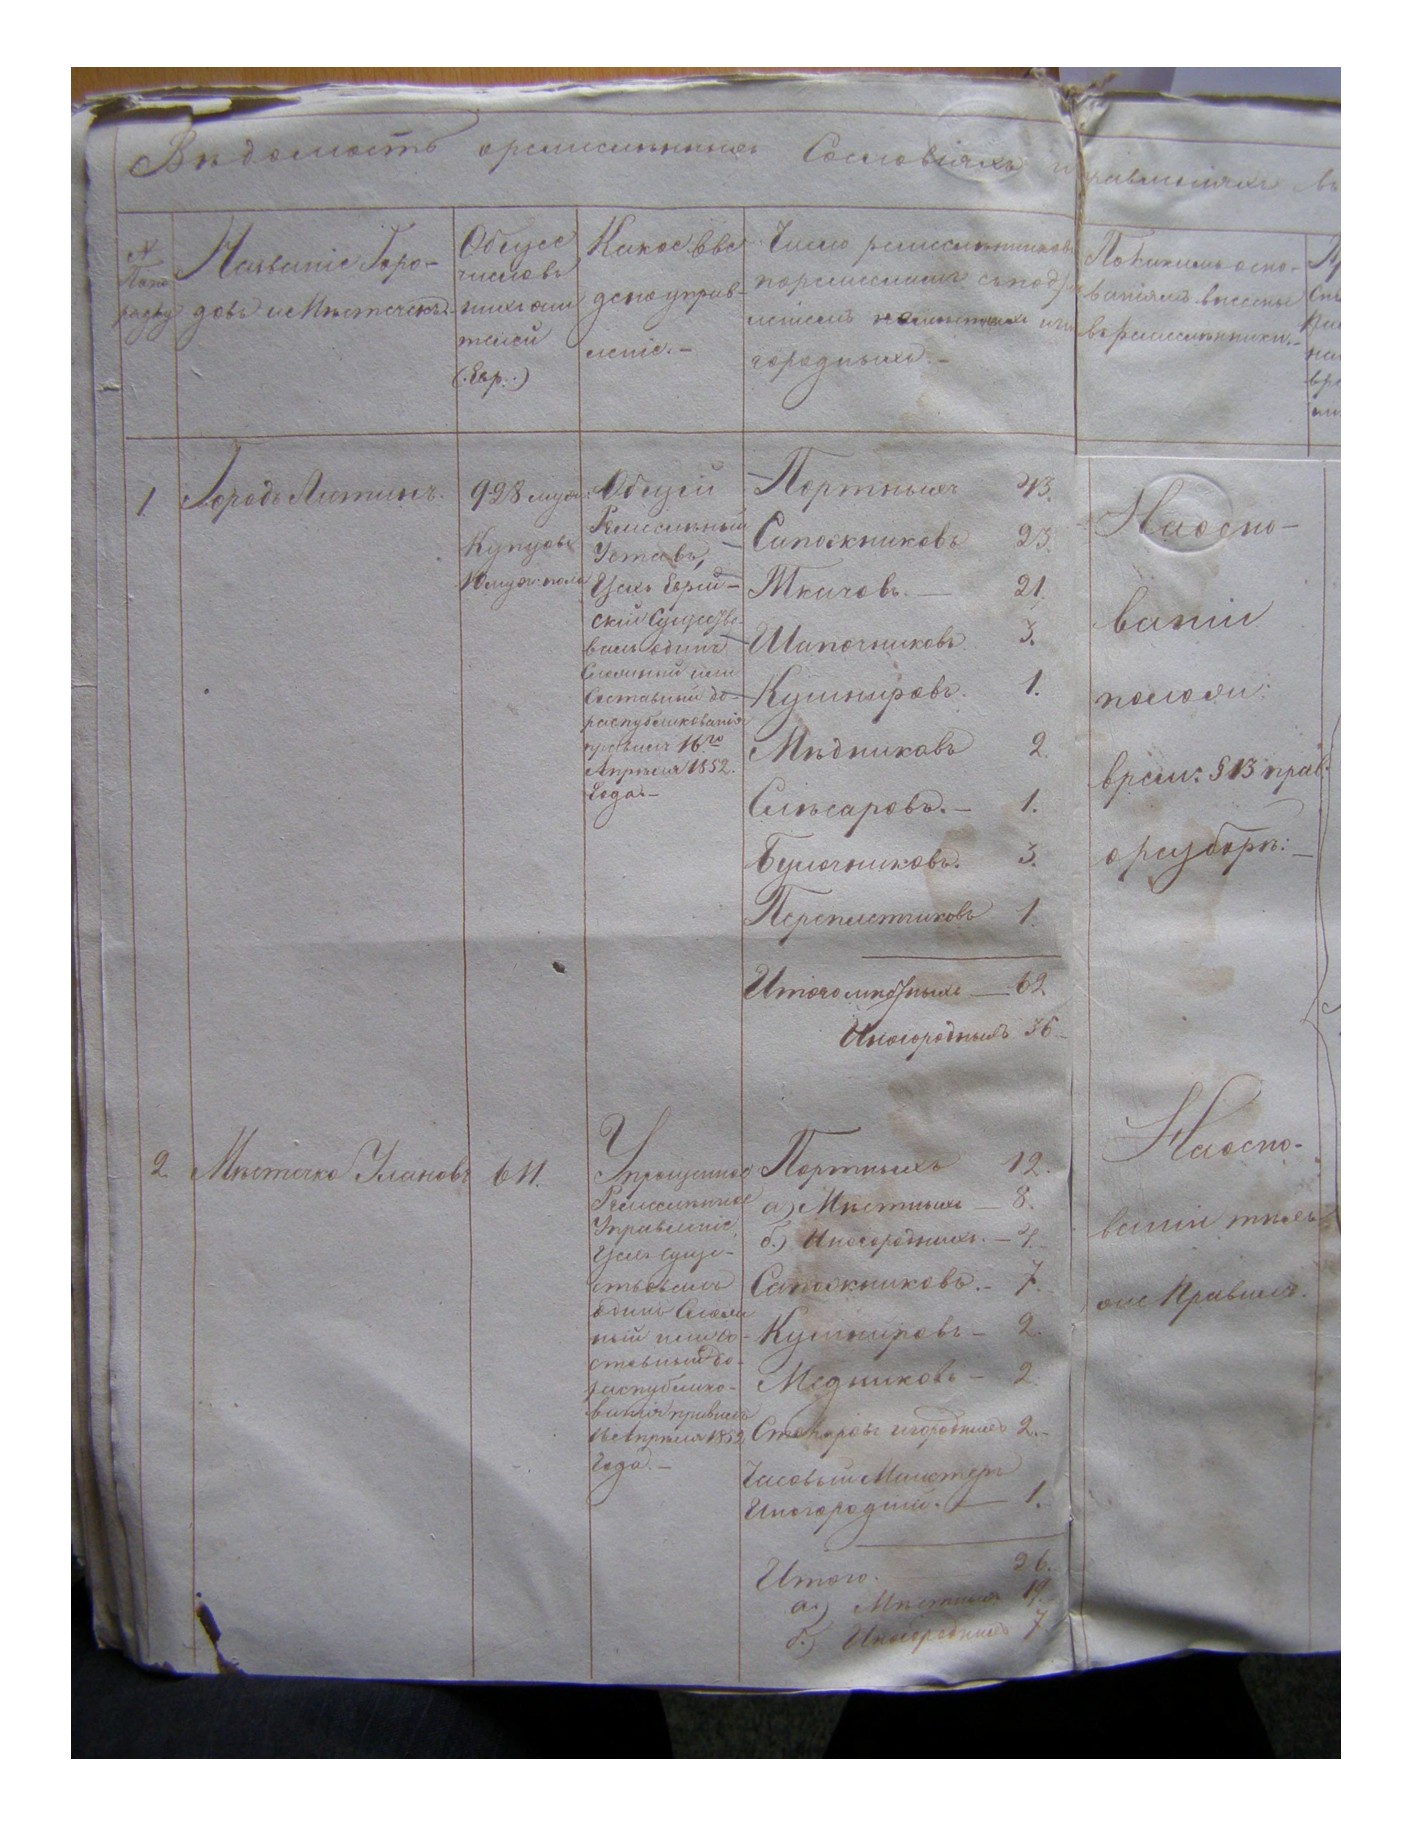 Вѣдомость о ремесленныхъ Сословіяхъ и управленіяхъ въ
№ По порядку
Названіе Горо-
довъ и Мѣстечекъ.
Общее
число въ
нихъ жи
телей
(Евр.)
Какое вве
дено управ-
леніе.-
Число ремесленниковъ
по ремесламъ съ подраз
леніемъ на мѣстныхъ и ино
городныхъ.-
По какимъ осно-
ваніямъ внесены
въ ремесленники.-
1. Городъ Литинъ.
928 муж:
Купцовъ
10 муж: пола
Общій
Ремесленный
Уставъ,
Цехъ Еврей-
скій Существо
валъ одинъ
Сложный или
Составный до-
распубликованія
правилъ 16го
Апрѣля 1852.
Года.-
Портныхъ 43.
Сапожниковъ 23.
Ткачовъ.- 21.
Шапочниковъ 3.
Кушнировъ. 1.
Мѣдниковъ 2.
Слѣсаровъ.- 1.
Булочниковъ. 3.
Переплетчиковъ 1.
Итого мѣстныхъ — 62
Иногородныхъ 36-
На осно-
ваніи
полож:
врем: § 13 прав:
о разборѣ:-
2. Мѣстечко Улановъ
611.
Упрощенное
Ремесленное
Управленіе,
Цехъ суще-
ствовалъ
одинъ Слож
ный или со-
ставный до-
распублико-
ванія правилъ
16 Апрѣля 1852
Года.-
Портныхъ 12.
а) Мѣстныхъ — 8.
б.) Иногородныхъ.- 4.
Сапожниковъ.- 7.
Кушнировъ - 2.
Медниковъ - 2.
Столяровъ иногородныхъ 2.-
Часовый Мастеръ
Иногородній.- 1.
Итого. 26.
а.) Мѣстныхъ 19.
б.) Иногородныхъ 7
На осно-
ваніи тѣхъ
же Правилъ.